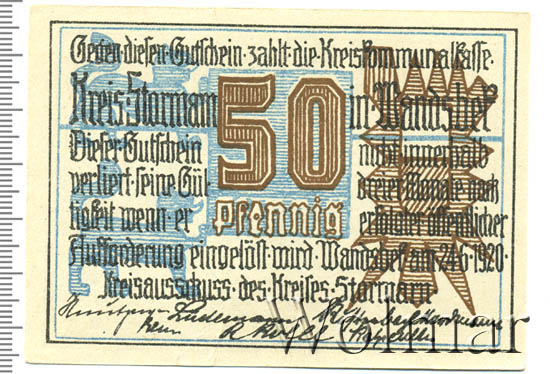 Gegen·diesen·Gutschein·zahlt·die·Kreiskommunalkasse·
Kreis·Stormarn 50 in·Wandsbek
Dieser·Gutschein nicht·innerhalb
verliert·seine·Gül- dreier·Monate·nach
tigkeit·wenn·er Pfennig erfolgter·öffentlicher
Aufforderung·eingelöst·wird·Wandsbek·am·24.6·1920·
Kreisausschuss·des·Kreises·Stormarn